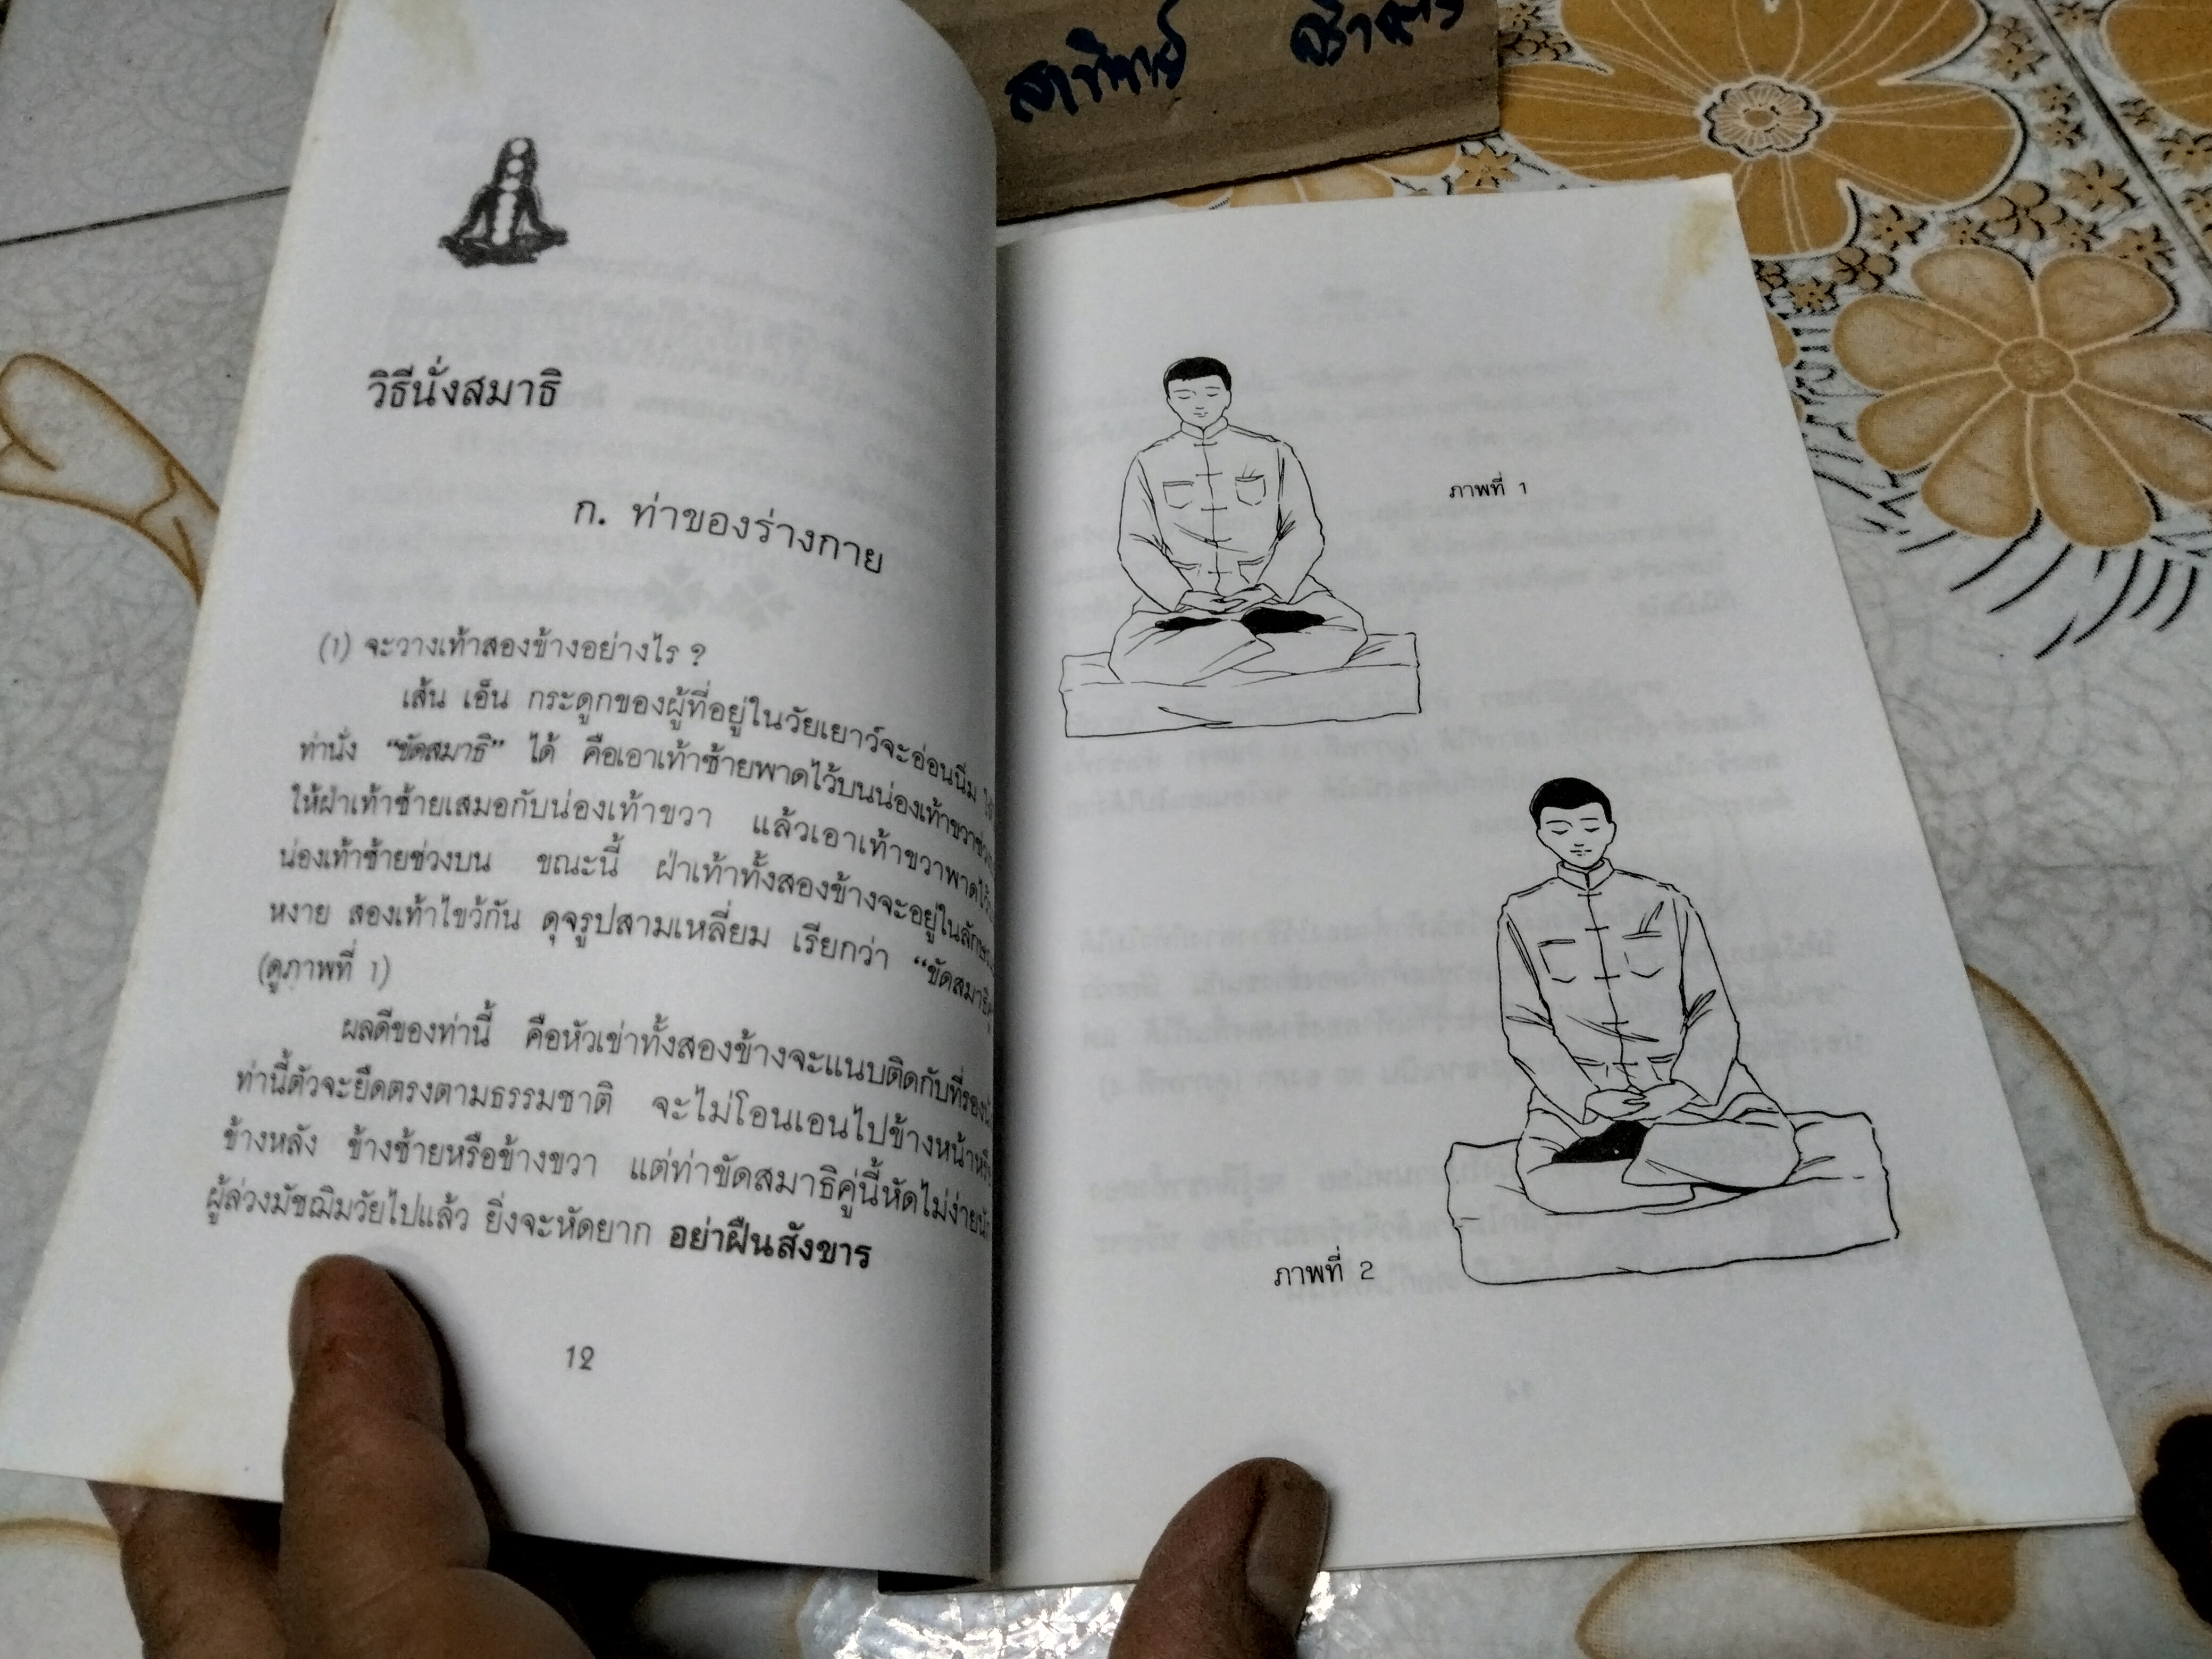 วิธีนั่งสมาธิ
ก. ท่าของร่างกาย
(1) จะวางเท้าสองข้างอย่างไร ?
เส้น เอ็น กระดูกของผู้ที่อยู่ในวัยเยาว์จะอ่อนนิ่ม
ท่านั่ง “ขัดสมาธิ” ได้ คือเอาเท้าซ้ายพาดไว้บนน่องเท้าขวา
ให้ฝ่าเท้าซ้ายเสมอกับน่องเท้าขวา แล้วเอาเท้าขวาพาดไว้
น่องเท้าซ้ายช่วงบน ขณะนี้ ฝ่าเท้าทั้งสองข้างจะอยู่ใน
หงาย สองเท้าไขว้กัน ดุจรูปสามเหลี่ยม เรียกว่า “ขัดสมาธิ
(ดูภาพที่ 1)
ผลดีของท่านี้ คือหัวเข่าทั้งสองข้างจะแนบติดกับที่
ท่านี้ตัวจะยืดตรงตามธรรมชาติ จะไม่โอนเอนไปข้างหน้า
ข้างหลัง ข้างซ้ายหรือข้างขวา แต่ท่าขัดสมาธิคู่นี้หัดไม่ง่าย
ผู้ล่วงมัชฌิมวัยไปแล้ว ยิ่งจะหัดยาก อย่าฝืนสังขาร
12
ภาพที่ 1
ภาพที่ 2